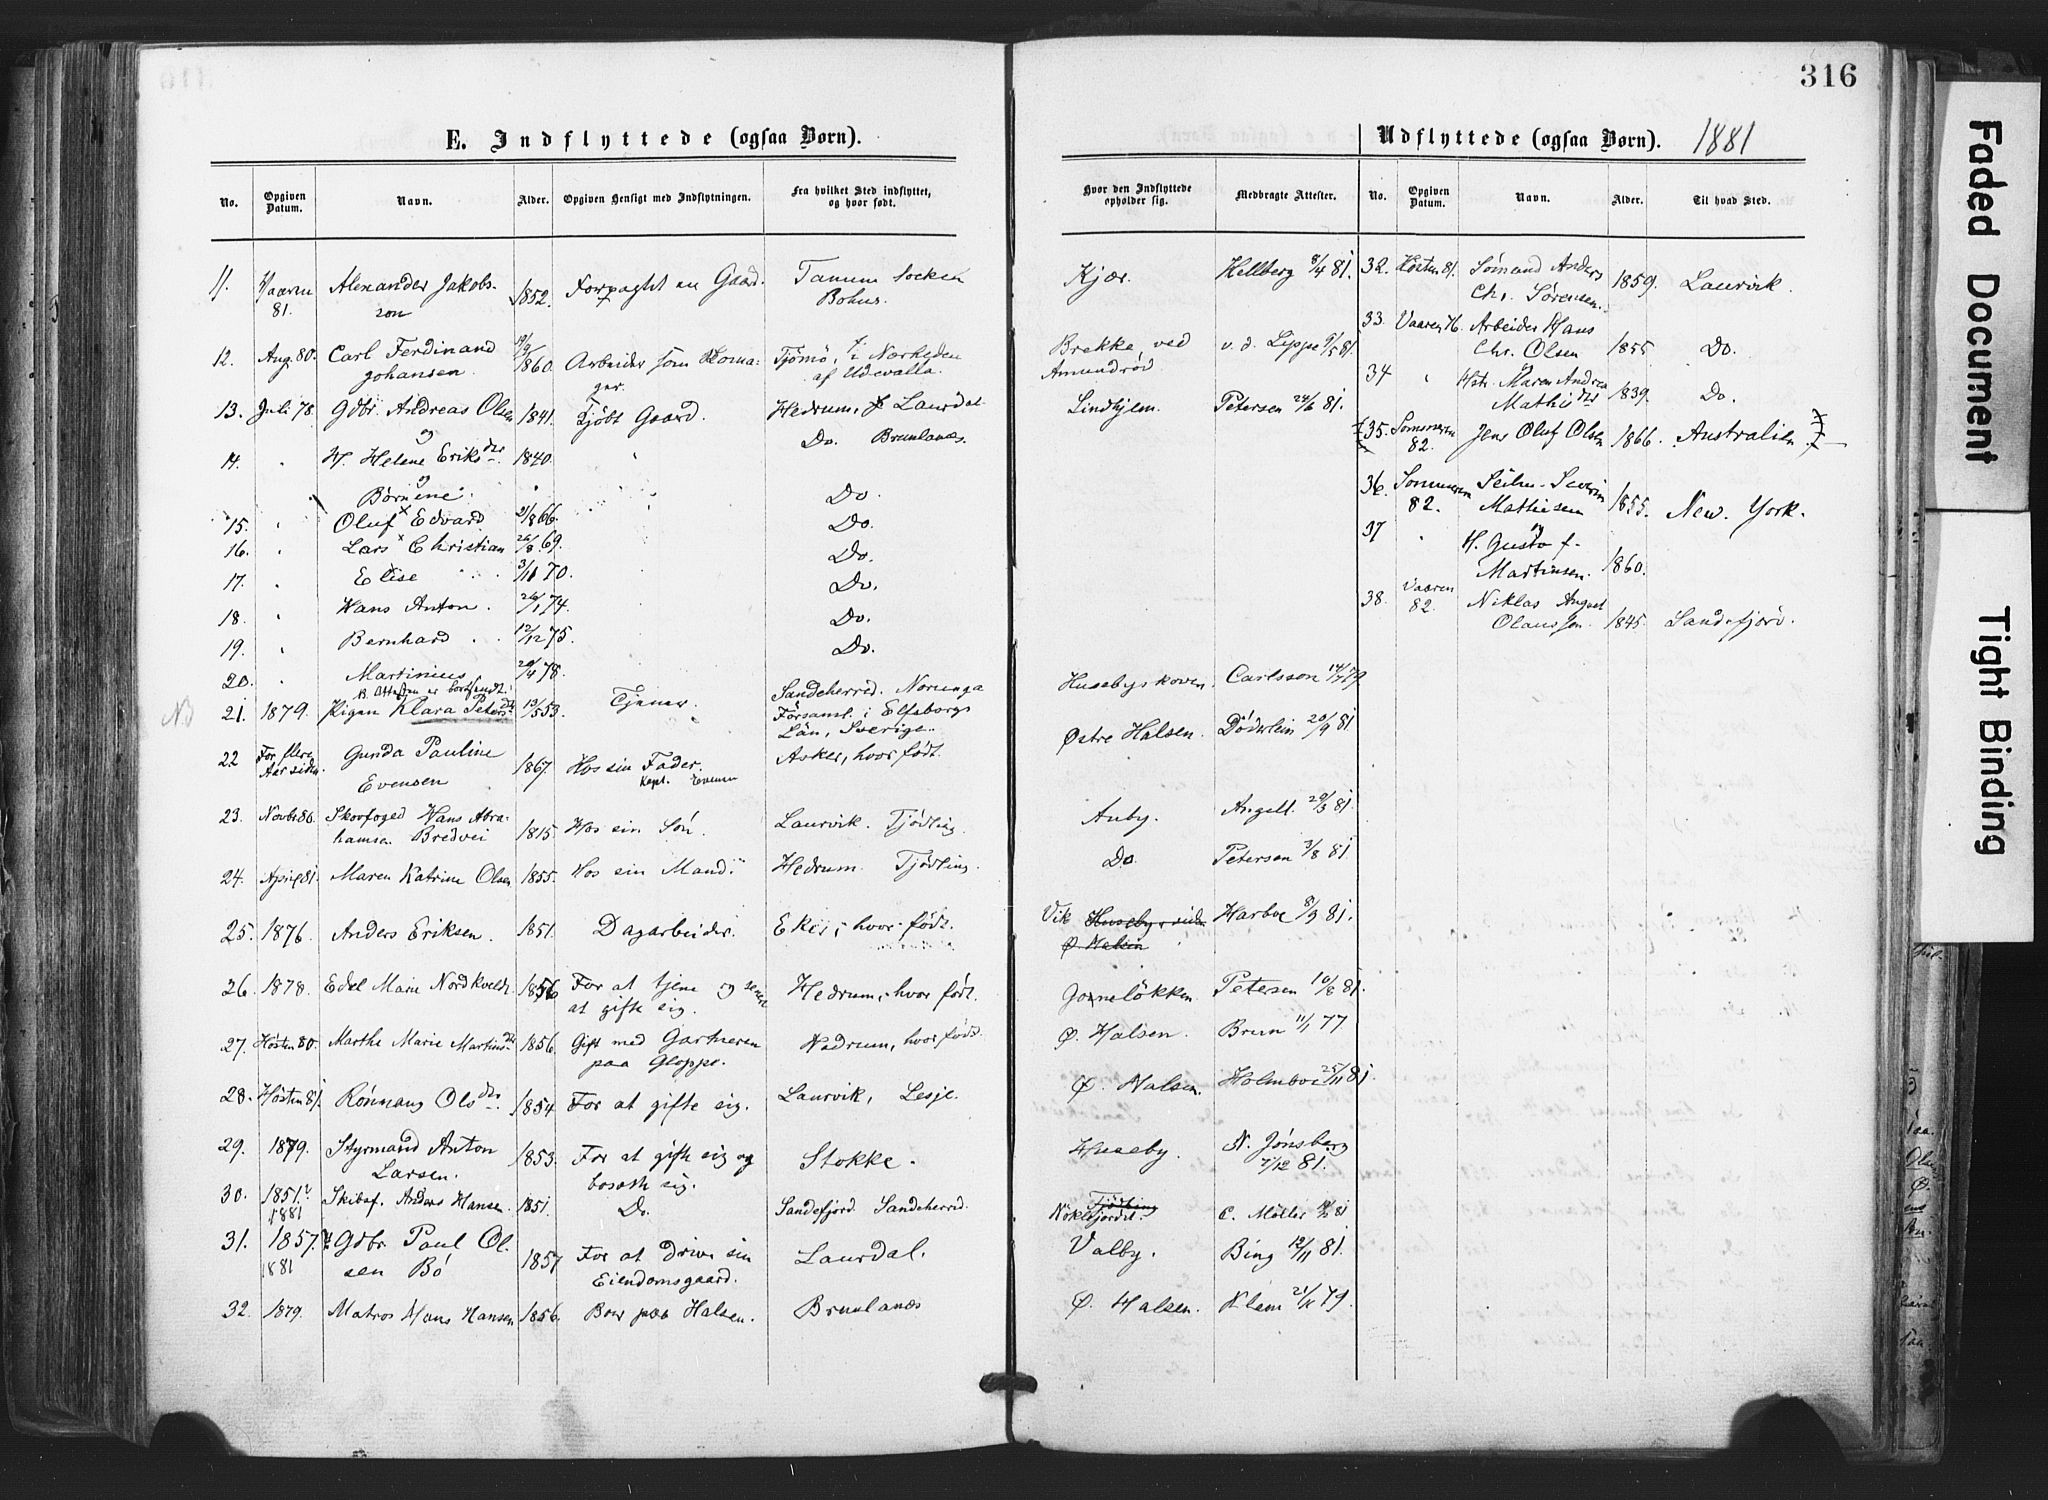 316
E. Indflyttede (ogsaa Børn).
Udflyttede (ogsaa Børn). 1881
No. Opgiven Datum. Navn. Alder. Opgiven Hensigt med Indflytningen. Fra hvilket Sted indflyttet, og hvor født. Hvor den Indflyttede opholder sig. Medbragte Attester.
No. Opgiven Datum. Navn. Alder. Til hvad Sted.
11. Vaaren 81. Alexander Jakobsson 1852. Forpagtet en Gaard. Tanum Socken Bohus. Kjær. Hellberg 8/4 81.
12. Aug. 80. Carl Ferdinand Johansen 1860. Arbeider som Tjömö, i Nærheden af Udevalla. Brekke ved Amundrød v. d. Lippe 9/5 81.
13. Juli 78. Gdbr. Andreas Olsen 1841. Kjöbt Gaard. Hedrum. Laurdal Lindhjem. Petersen 24/6 81.
og Do. Brunlanæs.
14. " H. Helene Eriksdtr 1840. "
og Børnene. Do.
15. " Oluf Edvard 21/8 66. Do.
16. " Lars Christian 26/8 69. Do.
17. " Elise 3/11 70. Do.
18. " Hans Anton. 26/1 74. Do.
19. " Bernhard 12/12 75. Do.
20. " Martinius 20/4 78.
B. Attesten er bortsendt.
NB 21. 1879. Pigen Klara Petersdtr 19/5 53. Tjener. Sandeherred. Norunga Församl. i Elfsborgs Län, Sverige. Husebyskoven. Carlsson 14/7 79
22 For flere Aar siden. Gunda Pauline Evensen 1867. Hos sin Fader. Kapt. Evensen Asker, hvor født. Østre Halsen. Döderlein 20/9 81
23. Novbr 80. Skovfoged Hans Abrahamsen Bredvei 1815. Hos sin Søn. Laurvik. Tjödling. Auby. Angell 20/3 81.
24. April 81. Maren Katrine Olsen 1855. Hos sin Mand. Hedrum. Tjödling. Do. Petersen 3/8 81.
25. 1876. Anders Eriksen. 1851. Dagarbeider. Eker, hvor født. Vik Ø. Halsen Harboe 8/9 81.
26. 1878. Edel Marie Nordkveldt 1856 For at tjene og senere at gifte sig. Hedrum, hvor født. Gorneløkken. Petersen 10/8 81.
27. Høsten 80. Marthe Marie Martinsdtr 1856. Gift med Gartneren paa Gloppe. Hedrum, hvor født. Ø. Halsen. Brun 11/1 77
28. Høsten 81. Rönnaug Olsdtr 1854. For at gifte sig. Laurvik, Lesje. Ø. Halsen. Holmboe 25/11 81.
29. 1879. Styrmand Anton Larsen. 1853. For at gifte sig og bosætte sig. Stokke. Huseby. N. Jönsberg 7/12 81.
30. 1851. 1881 Skibsf. Anders Hansen. 1851. Do. Sandefjord. Sandeherred. Tjødling C. Møller 81
31. 1857. 1881 Gdbr. Paul Olsen Bö 1857 For at drive sin Eiendomsgaard. Laurdal. Valby. Bing 12/11 81.
32. 1879. Matros Hans Hansen 1856. Boer paa Halsen. Brunlanæs Ø. Halsen. Klem 21/11 79.
32. Høsten 81. Sömand Anders Chr. Sørensen. 1859. Laurvik.
33. Vaaren 76. Arbeider Hans Chr. Olsen 1855 Do.
34 " og Hstr. Maren Andrea Mathisdtr 1839. Do.
35. Sommeren 82. Jens Oluf Olsen 1866. Australien
36. Sommeren 82. Severin Mathisen 1855. New York.
37 " og H. Gustaf Martinsen. 1860.
38. Vaaren 82. Niklas August Olaussen. 1845. Sandefjord.
Faded Document
Tight Binding